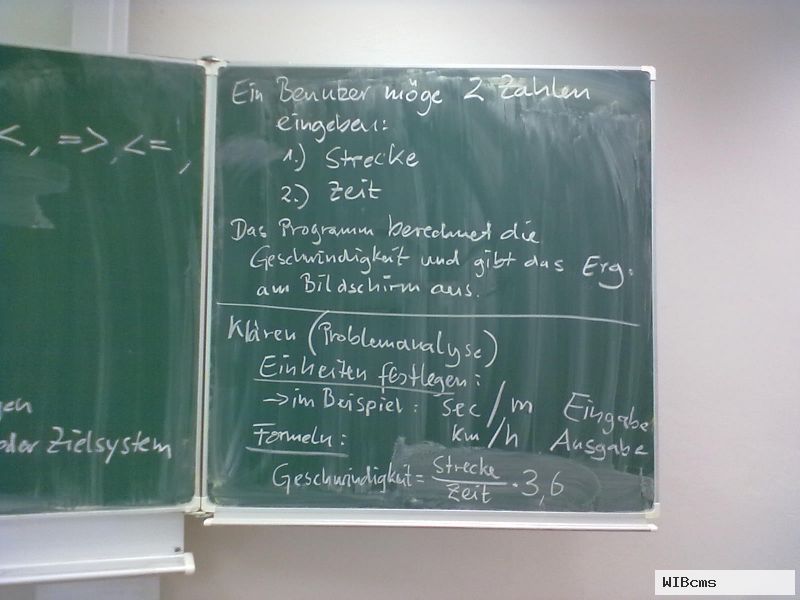 <, =>, <=,
gen
oder Zielsystem
Ein Benutzer möge 2 Zahlen
eingeben:
1.) Strecke
2.) Zeit
Das Programm berechnet die
Geschwindigkeit und gibt das Erg.
am Bildschirm aus.
Klären (Problemanalyse)
Einheiten festlegen:
→ im Beispiel: sec / m Eingabe
km / h Ausgabe
Formeln:
Geschwindigkeit = Strecke / Zeit · 3,6
WIBcms